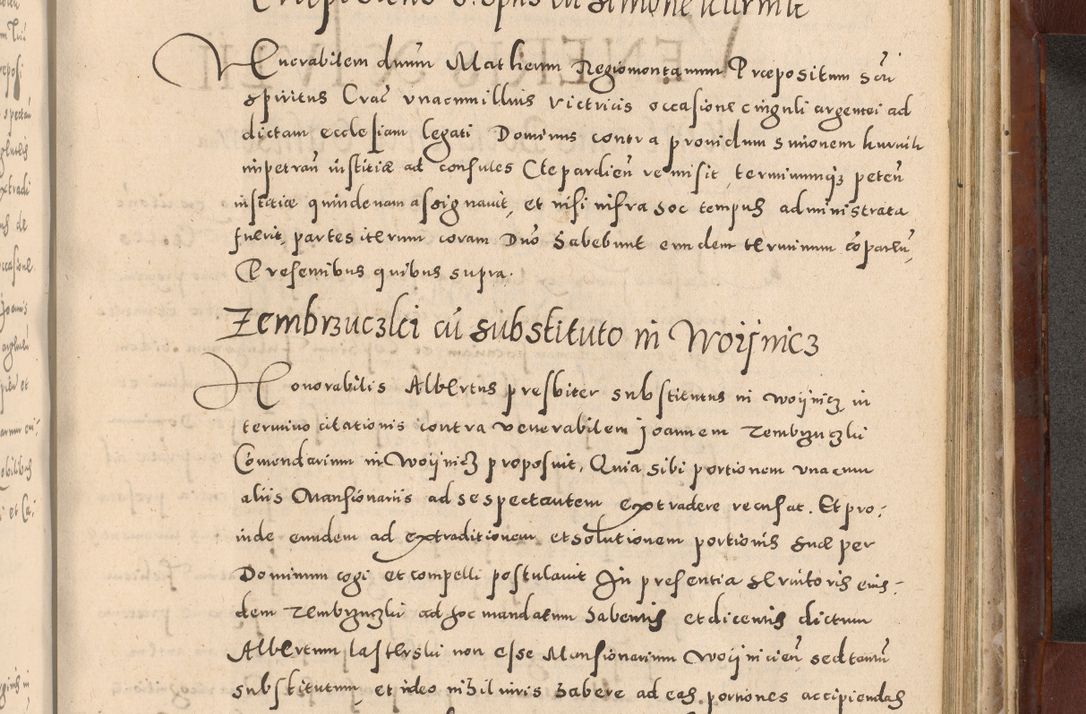 Venerabilem dnum Matheum Regiomontanum Præpositum Scti
spiritus Crac vnacum illius victricis occasione cinguli argentei ad
dictam ecclesiam legati Dominus contra prouidum Simonem kurnik
impetran iustitiæ ad consules Clepardien remisit, terminumqz peten
iustitiæ quindenam assignauit, et nisi infra hoc tempus administrata
fuerit, partes iterum coram Dno habebunt eundem terminum coparen,
Presentibus quibus supra.
Zembrzuczki cu substituto in Woijnicz
Honorabilis Albertus presbiter substitutus in woijnicz in
termino citationis contra venerabilem joannem Zembrzuczki
Comendarium in Woijnicz proposuit, Quia sibi portionem vnacum
aliis Mansionariis ad se spectantem extradere recusat. Et pro:
inde eundem ad extraditionem et solutionem portionis suæ per
Dominum cogi et compelli postulauit In presentia seruitoris eius:
dem Zembrzuczki ad hoc mandatum habentis et dicentis dictum
Albertum lasterski non esse Mansionarium Woijnicien, sed tantu
substitutum, et ideo nihil iuris habere ad eas portiones accipiendas